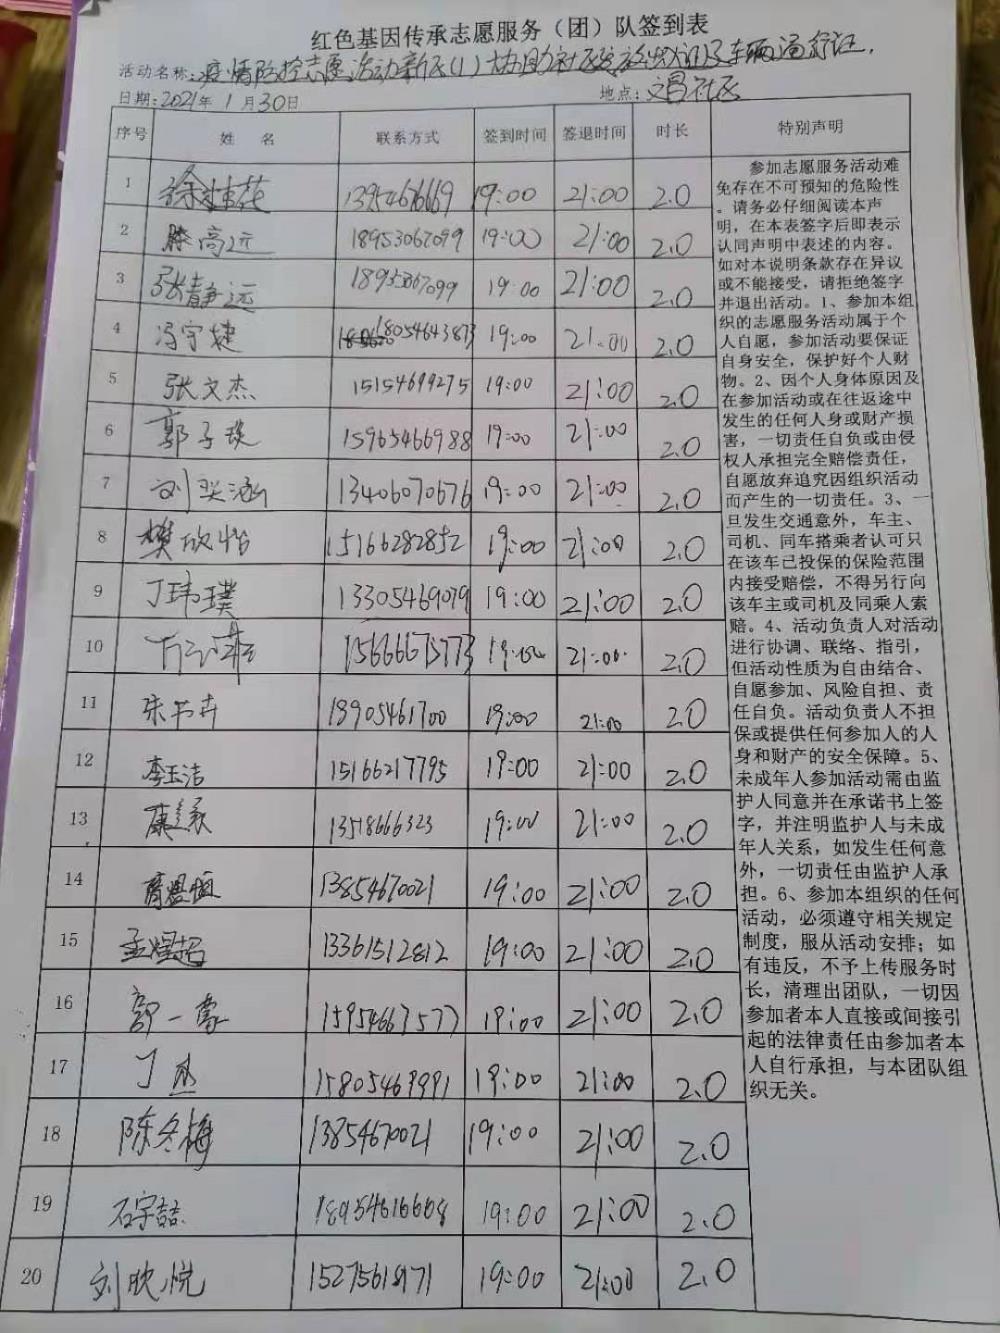 红色基因传承志愿服务（团）队签到表
活动名称：疫情防控志愿活动
日期：2021年1月30日 地点：文昌社区
序号 姓名 联系方式 签到时间 签退时间 时长 特别声明
1 1395467669 19:00 21:00 2.0
2 滕高远 18953067099 19:00 21:00 2.0
3 张静远 18953067099 19:00 21:00 2.0
4 冯宇捷 18054643873 19:00 21:00 2.0
5 张文杰 15154699275 19:00 21:00 2.0
6 郭子琰 15965466988 19:00 21:00 2.0
7 刘奕涵 13406070676 19:00 21:00 2.0
8 樊欣怡 15166282852 19:00 21:00 2.0
9 丁玮璞 13305469079 19:00 21:00 2.0
10 15666673773 19:00 21:00 2.0
11 朱书卉 18905461700 19:00 21:00 2.0
12 李玉洁 15166217795 19:00 21:00 2.0
13 13518666323 19:00 21:00 2.0
14 13854670021 19:00 21:00 2.0
15 孟煜超 13361512812 19:00 21:00 2.0
16 郭一蒙 15954667577 19:00 21:00 2.0
17 丁 15805469991 19:00 21:00 2.0
18 陈冬梅 13854670021 19:00 21:00 2.0
19 石宇喆 18954616608 19:00 21:00 2.0
20 刘欣悦 15275618171 19:00 21:00 2.0
参加志愿服务活动难
免存在不可预知的危险性
。请务必仔细阅读本声
明，在本表签字后即表示
认同声明中表述的内容。
如对本说明条款存在异议
或不能接受，请拒绝签字
并退出活动。1、参加本组
织的志愿服务活动属于个
人自愿，参加活动要保证
自身安全，保护好个人财
物。2、因个人身体原因及
在参加活动或在往返途中
发生的任何人身或财产损
害，一切责任自负或由侵
权人承担完全赔偿责任，
自愿放弃追究因组织活动
而产生的一切责任。3、一
旦发生交通意外，车主、
司机、同车搭乘者认可只
在该车已投保的保险范围
内接受赔偿，不得另行向
该车主或司机及同乘人索
赔。4、活动负责人对活动
进行协调、联络、指引，
但活动性质为自由结合、
自愿参加、风险自担、责
任自负。活动负责人不担
保或提供任何参加人的人
身和财产的安全保障。5、
未成年人参加活动需由监
护人同意并在承诺书上签
字，并注明监护人与未成
年人关系，如发生任何意
外，一切责任由监护人承
担。6、参加本组织的任何
活动，必须遵守相关规定
制度，服从活动安排；如
有违反，不予上传服务时
长，清理出团队，一切因
参加者本人直接或间接引
起的法律责任由参加者本
人自行承担，与本团队组
织无关。